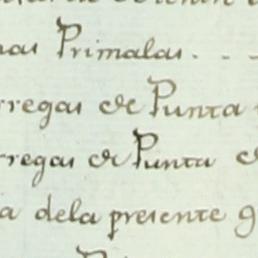 Primalas. . .
rregas de Punta
rregas de Punta
a dela presente